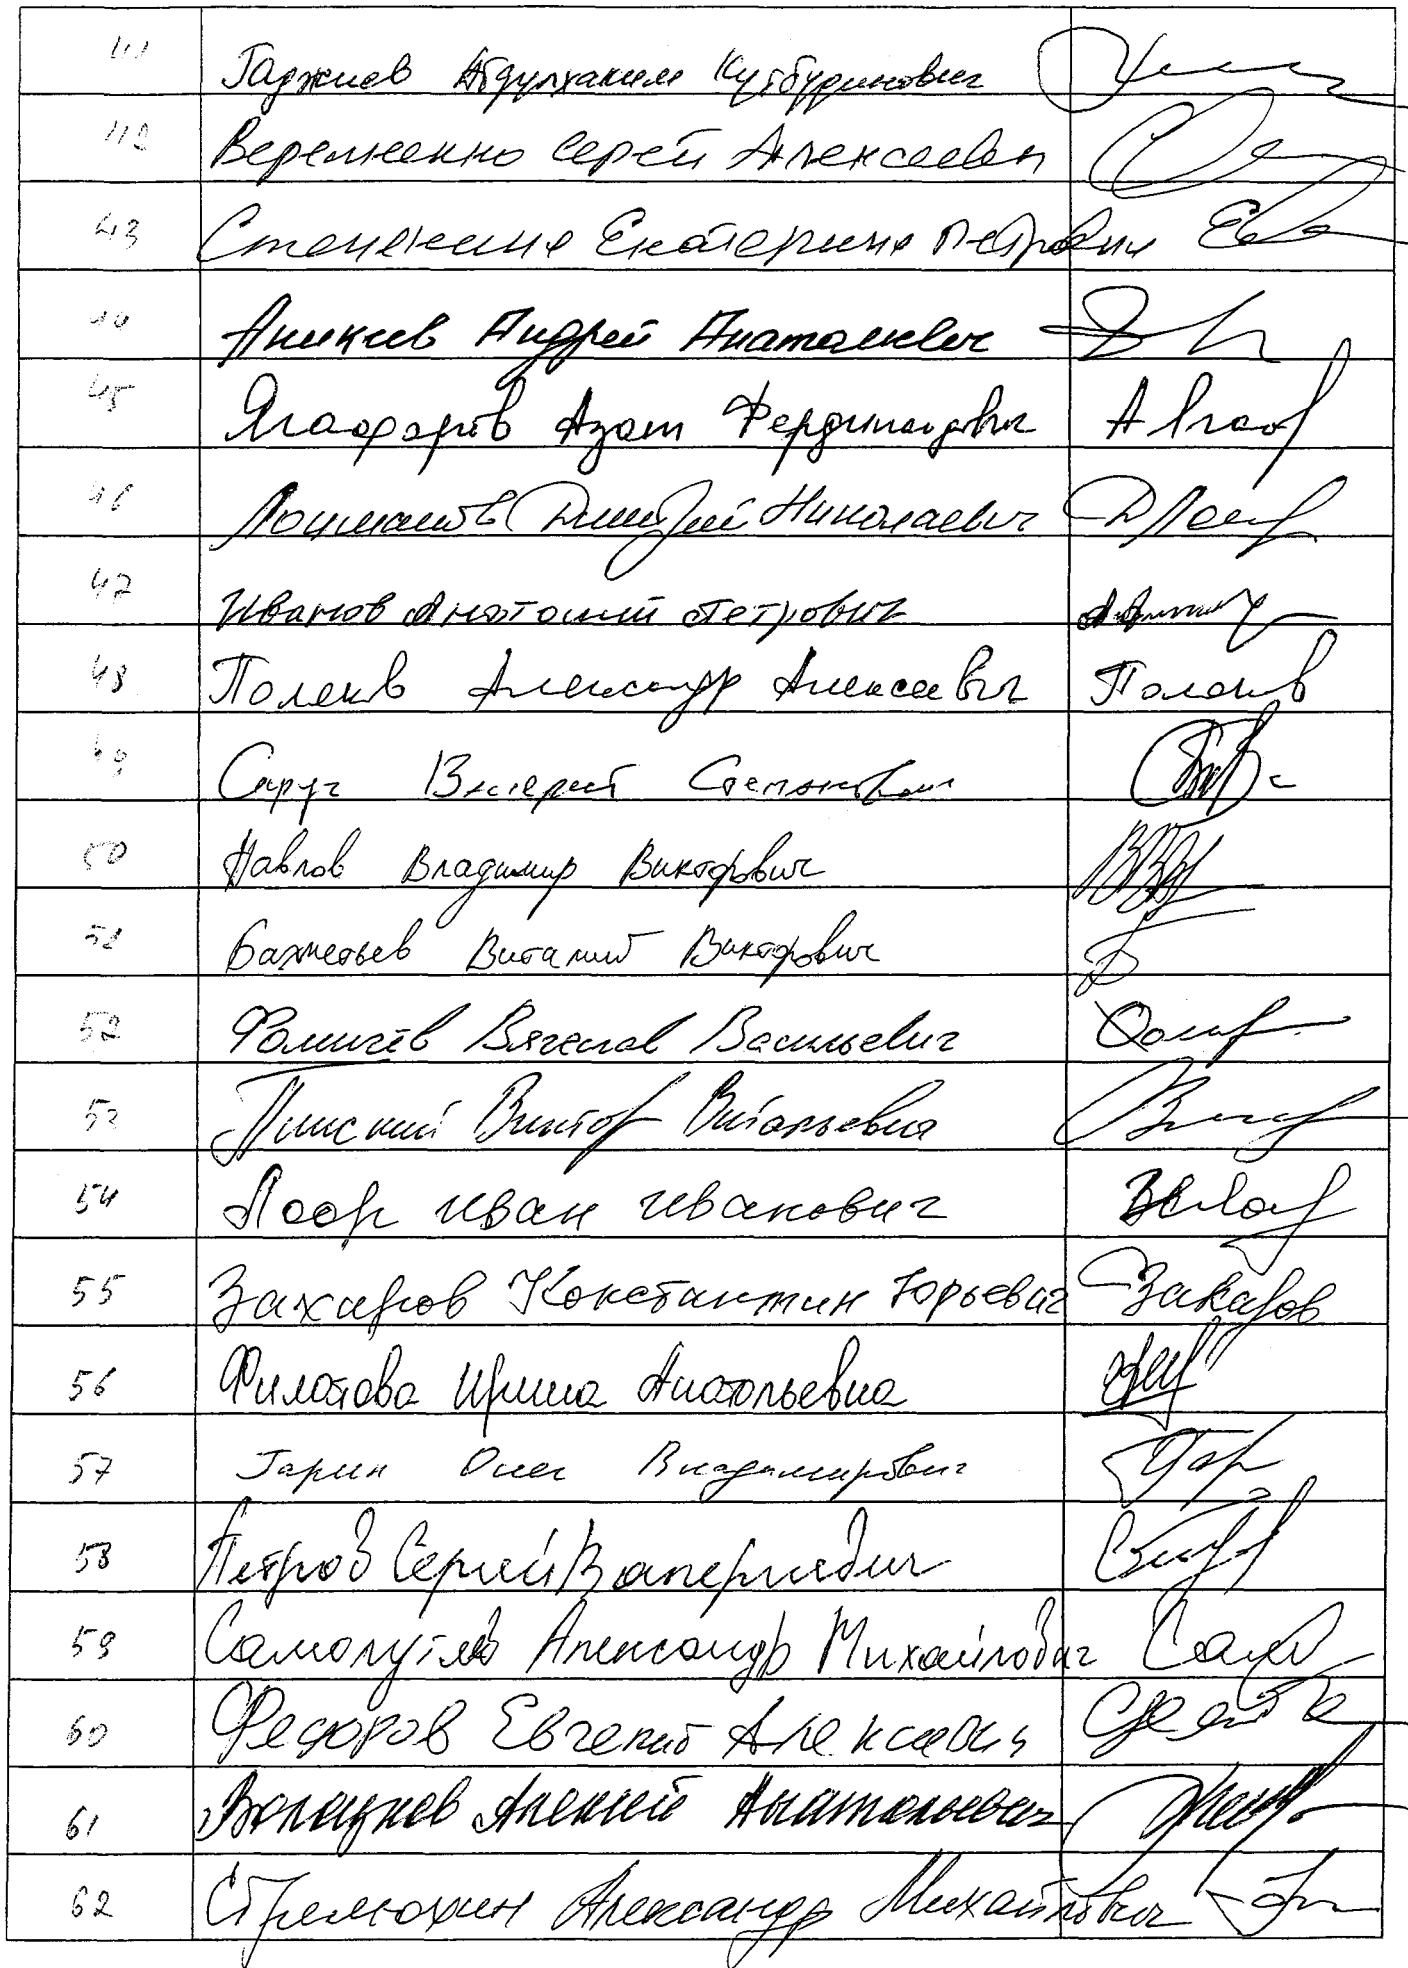 41 Гаджиев Абдулхаким Кутбудинович
42 Веремеенко Сергей Алексеевич
43 Стенякина Екатерина Петровна
44 Аникеев Андрей Анатольевич
45 Ягафаров Азат Фердинандович
46 Лоцманов Дмитрий Николаевич
47 Иванов Анатолий Петрович
48 Поляков Александр Алексеевич
49 Сируч Валерий Степанович
50 Павлов Владимир Викторович
51 Бахметьев Виталий Викторович
52 Фомичёв Вячеслав Васильевич
53 Пинский Виктор Витальевич
54 Лоор Иван Иванович
55 Захаров Константин Юрьевич Захаров
56 Филатова Ирина Анатольевна
57 Гарин Олег Владимирович
58 Петров Сергей Валериевич
59 Самокутяев Александр Михайлович
60 Федоров Евгений Алексеевич
61 Волоцков Алексей Анатольевич
62 Стрелюхин Александр Михайлович